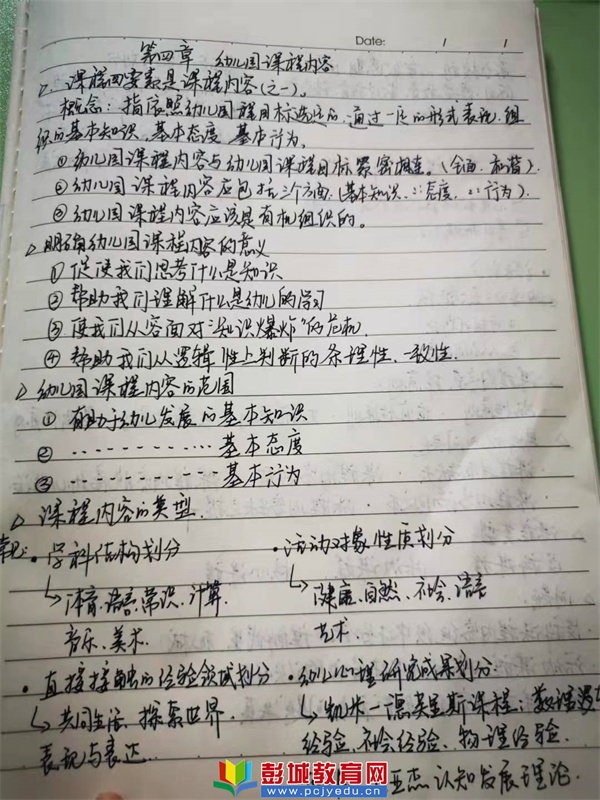 Date: / /
第四章 幼儿园课程内容
▷. 课程四要素是课程内容(之一)。
概念: 指依照幼儿园课程目标选定的,通过一定的形式表现、组
织的基本知识、基本态度 基本行为。
① 幼儿园课程内容与幼儿园课程目标紧密相连。(全面、和谐).
② 幼儿园课程内容应包括三个方面.(基本知识、:: 态度、:: 行为).
③ 幼儿园课程内容应该是有机组织的。
▷ 明确幼儿园课程内容的意义
① 促使我们思考什么是知识
② 帮助我们理解什么是幼儿的学习
③ 使我们从容面对“知识爆炸”的危机.
④ 帮助我们从逻辑性上判断的条理性、一致性.
▷ 幼儿园课程内容的范围
① 有助于幼儿发展的基本知识
② ............ 基本态度
③ ............ 基本行为
▷ 课程内容的类型.
常见: · 学科结构划分
↳ 体育、语言、常识、计算、
音乐、美术.
· 活动对象性质划分
↳ 健康、自然、社会、语言
艺术.
· 直接接触的经验领域划分
↳ 共同生活、探索世界、
表现与表达..
· 幼儿心理研究成果划分.
↳ 凯米-德芙里斯课程: 数理逻
经验、社会经验、物理经验.
亚杰认知发展理论.
彭城教育网
www.pcjyedu.cn